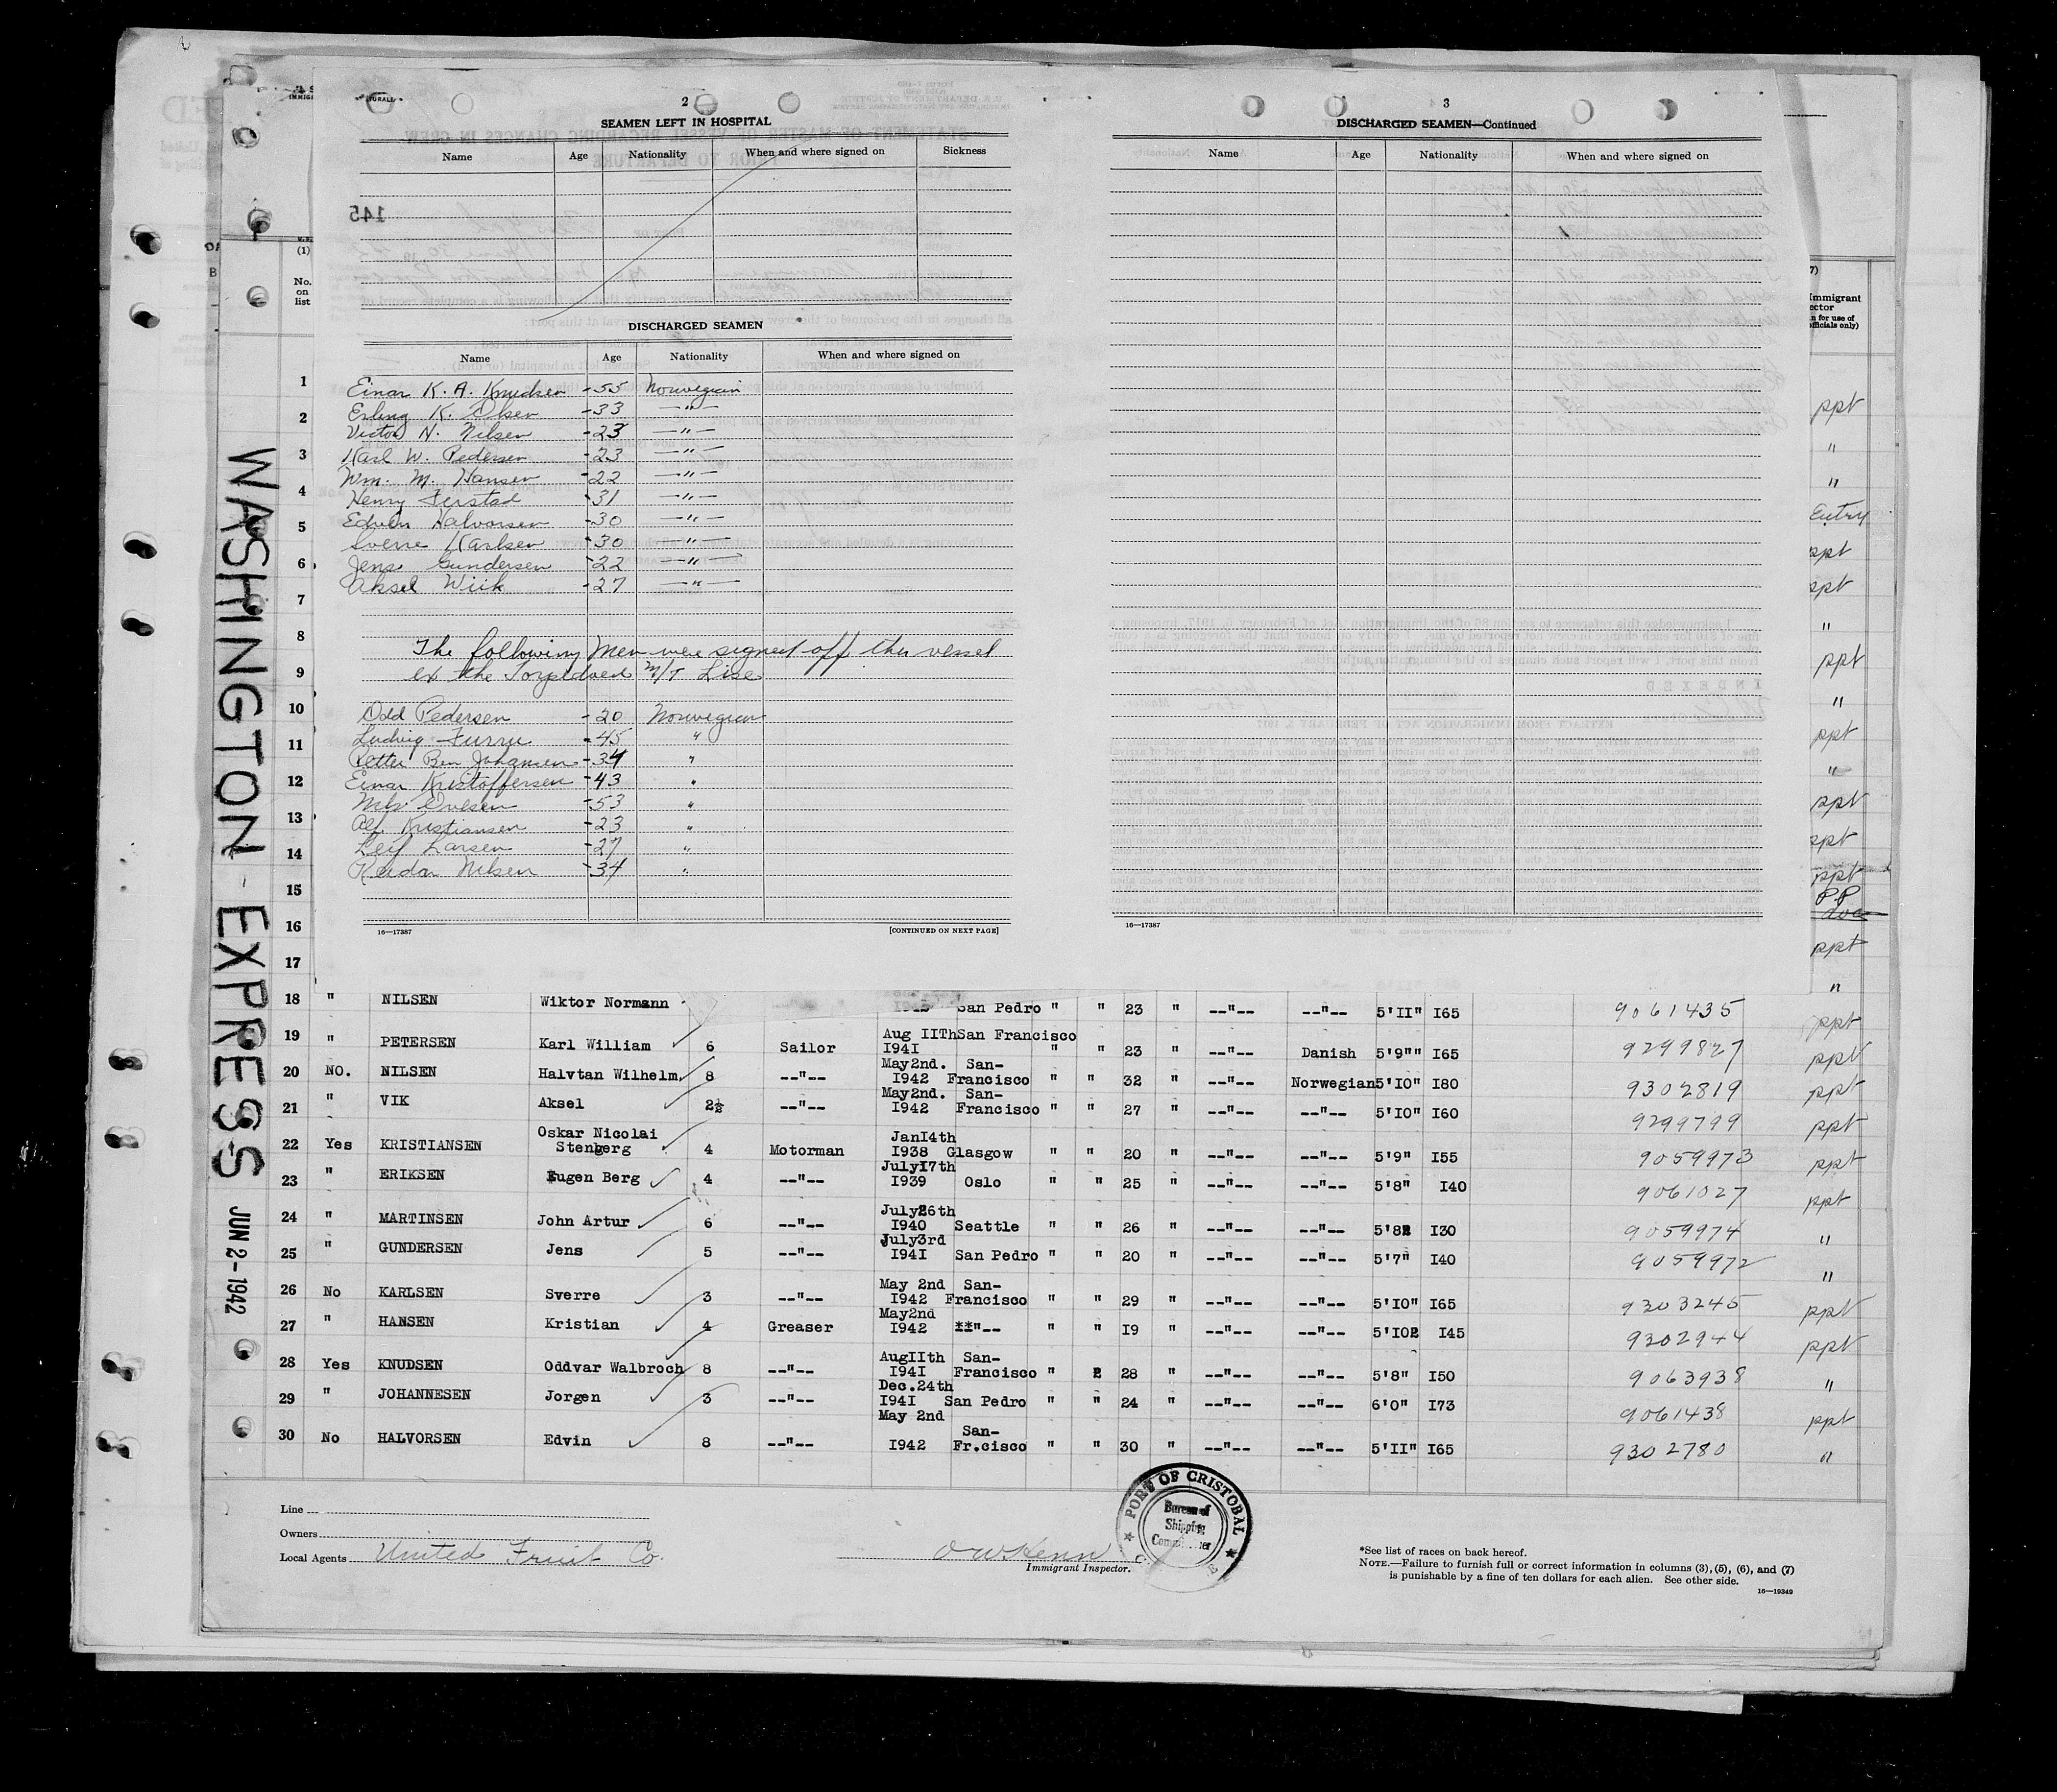 2
SEAMEN LEFT IN HOSPITAL
Name Age Nationality When and where signed on Sickness
145
DISCHARGED SEAMEN
Name Age Nationality When and where signed on
Einar K. A. Knudsen -55 Norwegian
Erling K. Olsen -33 —"—
Victor N. Nilsen -23 —"—
Karl W. Pedersen -23 —"—
Wm. M. Hansen -22 —"—
Henry -31 —"—
Edvin Halvorsen -30 —"—
Sverre Karlsen -30 —"—
Jens Gundersen -22 —"—
Aksel Wiik -27 —"—
The following Men were signed off this vessel
ex the Torpedoed M/T Lise
Odd Pedersen -20 Norwegian
Ludvig Furru -45 "
Petter Ben Johansen -34 "
Einar Kristoffersen -43 "
Nils -53 "
Alf Kristiansen -23 "
Leif Larsen -27 "
Reidar Nilsen -34 "
16—17387 [CONTINUED ON NEXT PAGE]
3
DISCHARGED SEAMEN—Continued
Name Age Nationality When and where signed on
16—17387
(1)
No. on list
1
2
3
4
5
6
7
8
9
10
11
12
13
14
15
16
17
7)
Immigrant
ector
n for use of
officials only)
ppt
"
"
Entry
ppt
ppt
"
ppt
"
ppt
"
ppt
ppt
ppt
PP
ppt
"
WASHINGTON - EXPRESS JUN 2-1942
18 " NILSEN Wiktor Normann San Pedro " " 23 " --"-- --"-- 5'II" I65 9061435 ppt
19 " PETERSEN Karl William 6 Sailor Aug IITh I94I San Francisco " " 23 " --"-- Danish 5'9"" I65 9299827 ppt
20 NO. NILSEN Halvtan Wilhelm. 8 --"-- May2nd. I942 San-Francisco " " 32 " --"-- Norwegian 5'IO" I80 9302819 ppt
21 " VIK Aksel 2½ --"-- May2nd. I942 San-Francisco " " 27 " --"-- --"-- 5'IO" I60 9299799 ppt
22 Yes KRISTIANSEN Oskar Nicolai Stenberg 4 Motorman JanI4th I938 Glasgow " " 20 " --"-- --"-- 5'9" I55 9059973 ppt
23 " ERIKSEN Eugen Berg 4 --"-- JulyI7th I939 Oslo " " 25 " --"-- --"-- 5'8" I40 9061027 ppt
24 " MARTINSEN John Artur 6 --"-- July26th I940 Seattle " " 26 " --"-- --"-- 5'8 I30 9059974 "
25 " GUNDERSEN Jens 5 --"-- July3rd I94I San Pedro " " 20 " --"-- --"-- 5'7" I40 9059972 "
26 No KARLSEN Sverre 3 --"-- May 2nd I942 San-Francisco " " 29 " --"-- --"-- 5'IO" I65 9303245 ppt
27 " HANSEN Kristian 4 Greaser May2nd I942 **"-- " " I9 " --"-- --"-- 5'IO I45 9302944 ppt
28 Yes KNUDSEN Oddvar Walbroch 8 --"-- AugIIth I94I San-Francisco " 28 " --"-- --"-- 5'8" I50 9063938 "
29 " JOHANNESEN Jorgen 3 --"-- Dec.24th I94I San Pedro " " 24 " --"-- --"-- 6'0" I73 9061438 ppt
30 No HALVORSEN Edvin 8 --"-- May 2nd I942 San-Fr.cisco " " 30 " --"-- --"-- 5'II" I65 9302780 "
Line
Owners
Local Agents United Fruit Co.
Immigrant Inspector.
PORT OF CRISTOBAL
Bureau of
Shipping
*See list of races on back hereof.
NOTE.—Failure to furnish full or correct information in columns (3), (5), (6), and (7)
is punishable by a fine of ten dollars for each alien. See other side.
16—19349